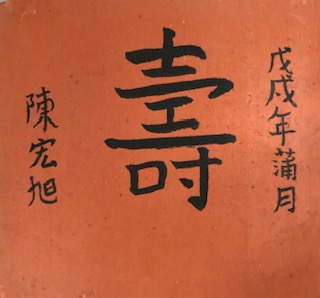 戊戌年蒲月
壽
陳宏旭